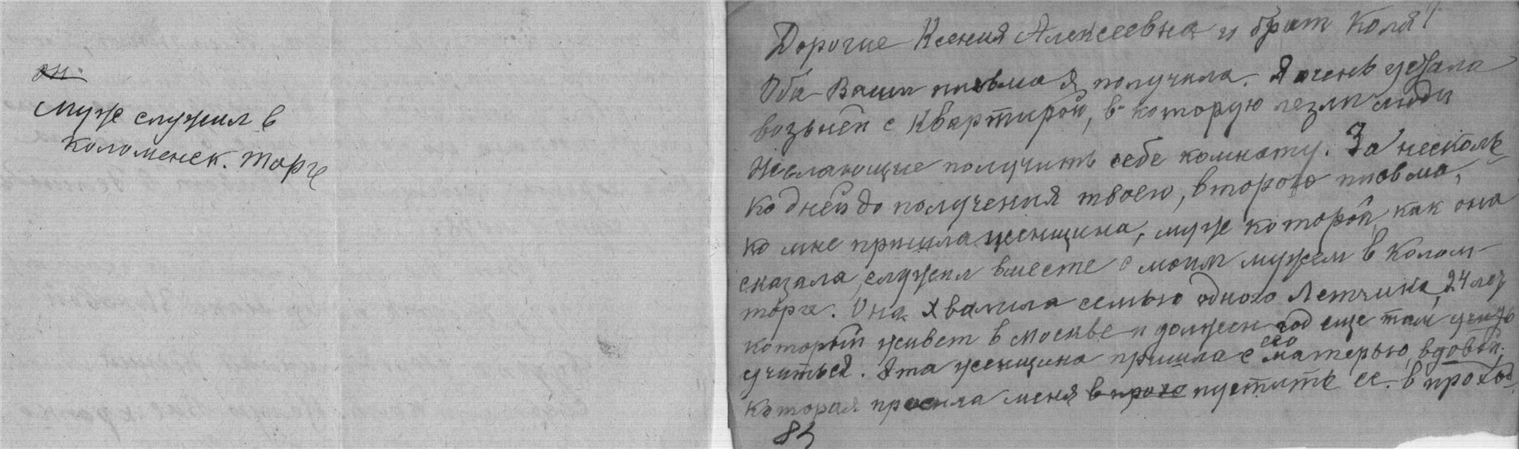 он
Муж служил в
Коломенск. торге
Дорогие Ксения Алексеевна и брат Коля!
Оба Ваши письма я получила. Я очень устала
возьней с квартирой, в которую лезли люди
желающие получить себе комнату. За несколь-
ко дней до получения твоего, второго письма,
ко мне пришла женщина, муж которой, как она
сказала, служил вместе с моим мужем в Колом-
торге. Она хвалила семью одного летчика, 24 лет
который живет в Москве и должен год еще там
учиться. Эта женщина пришла с его матерью, вдовой,
которая просила меня впрохо пустить ее в проход.
85